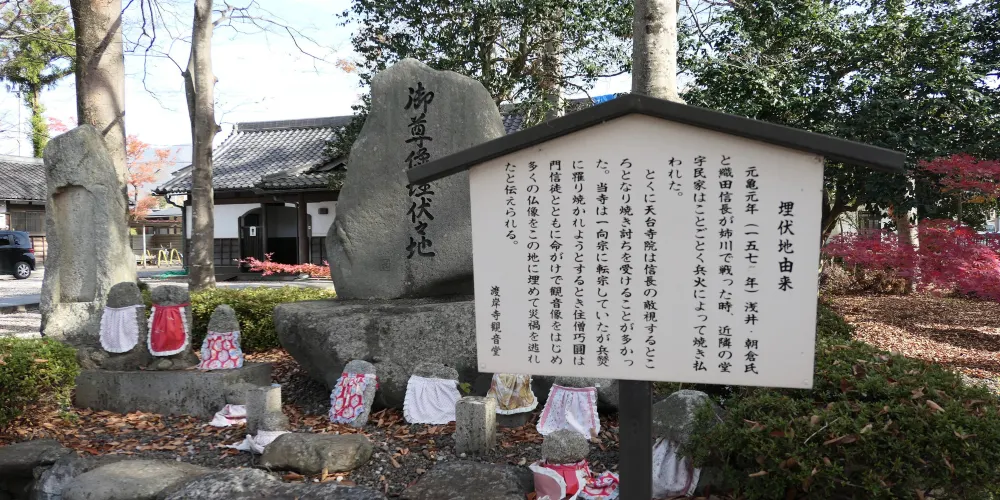 御尊像埋伏之地
埋伏地由来
元亀元年(一五七〇年)浅井・朝倉氏
と織田信長が姉川で戦った時、近隣の堂
宇民家はことごとく兵火によって焼き払
われた。
とくに天台寺院は信長の敵視するとこ
ろとなり焼き討ちを受けることが多かっ
た。当寺は一向宗に転宗していたが兵燹
に罹り焼かれようとするとき住僧巧圓は
門信徒とともに命がけで観音像をはじめ
多くの仏像をこの地に埋めて災禍を逃れ
たと伝えられる。
渡岸寺観音堂